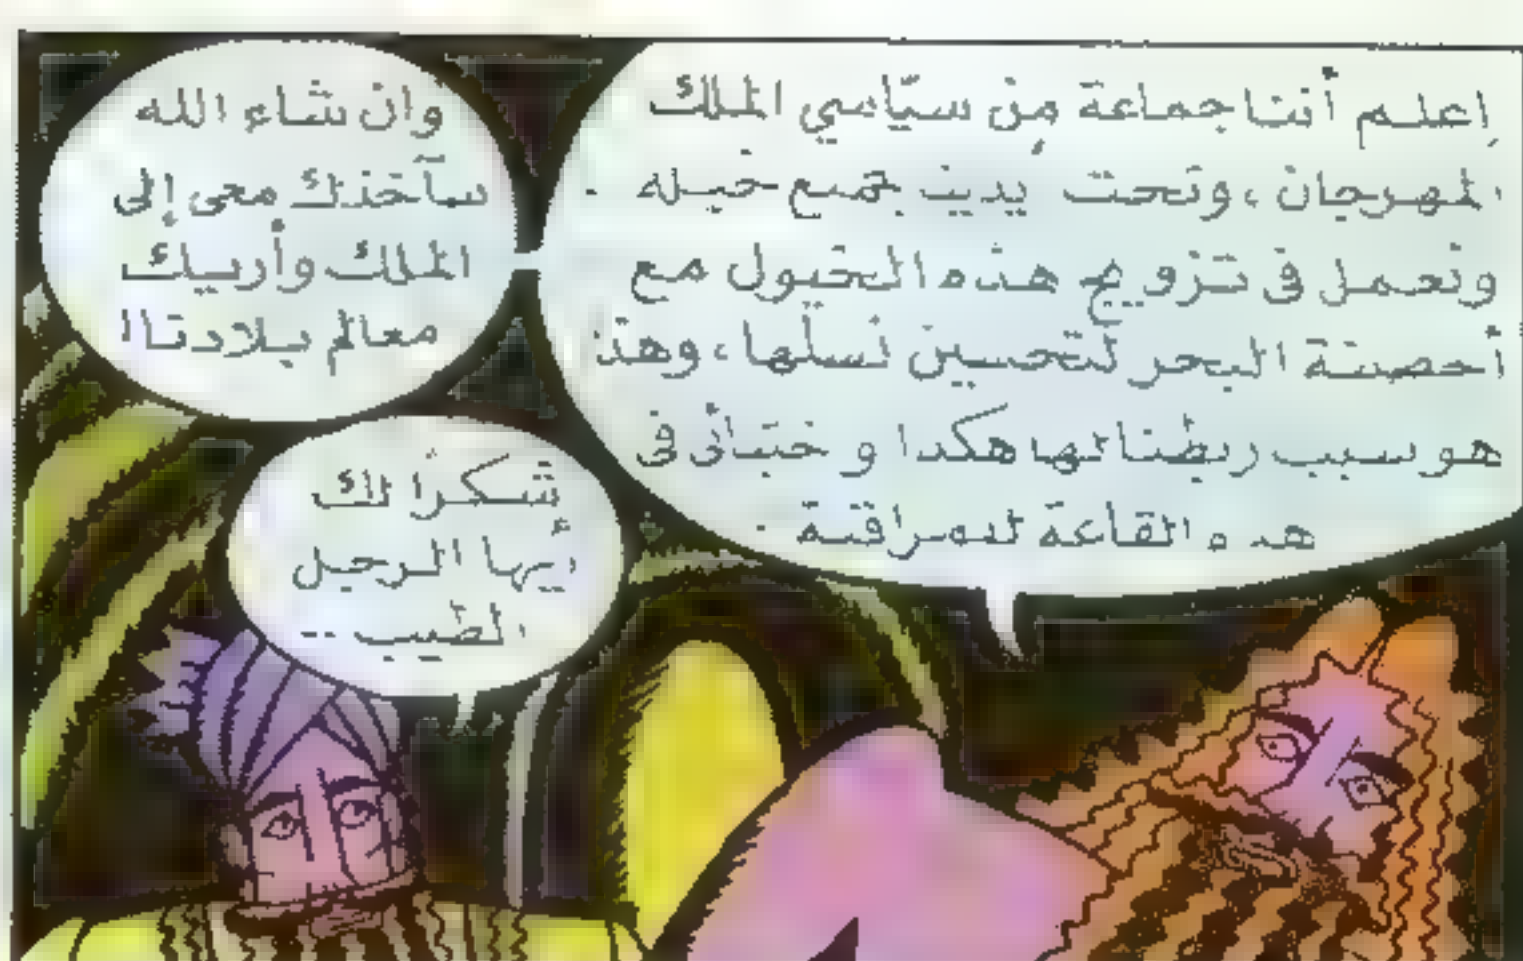 إعلم أننا جماعة مِن سيّاسي الملك
المهرجان ، وتحت يدينا جميع خيله .
ونعمل في تزويج هذه الخيول مع
أحصنة البحر لتحسين نسلها ، وهذا
هو سبب ربطنا لها هكذا و ختبائى فى
هذه القاعة للمراقبة .
وان شاء الله
سآخذك معى إلى
الملك وأريك
معالم بلادنا !
شكرًا لك
أيها الرجل
الطيب ..